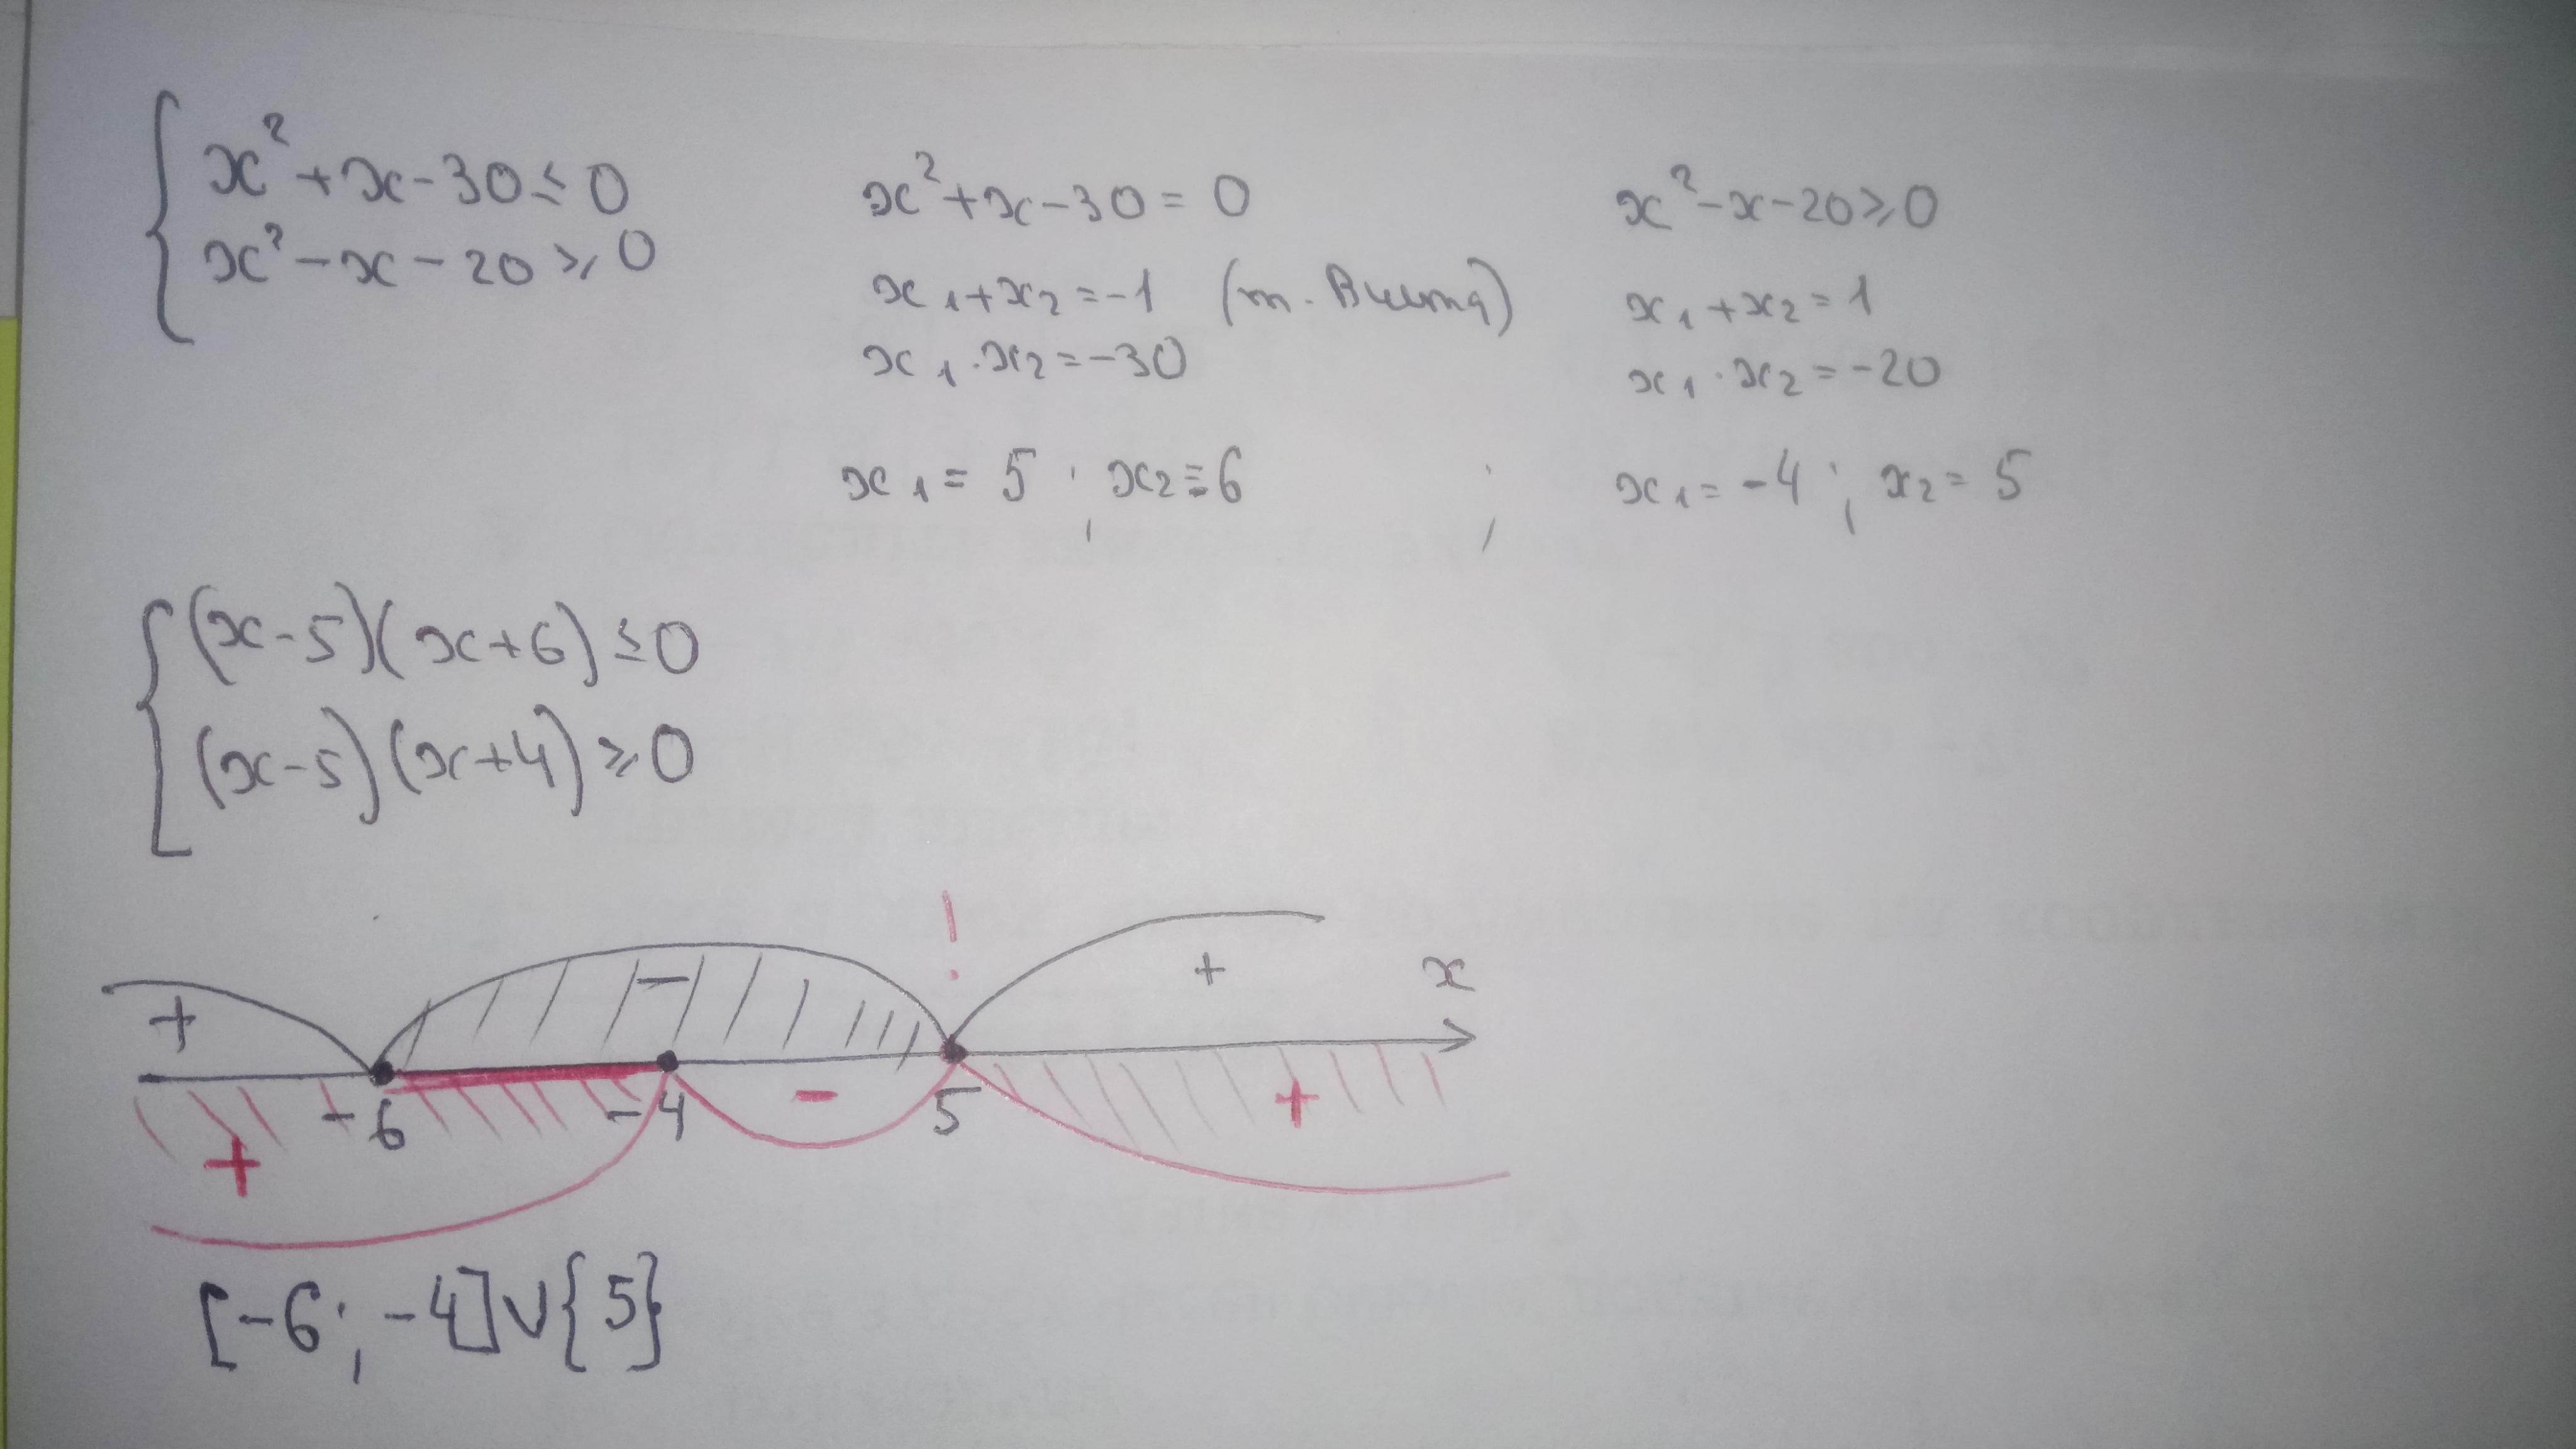 x² + x - 30 ≤ 0
x² - x - 20 ⩾ 0
x² + x - 30 = 0
x₁ + x₂ = -1 (т. Виета)
x₁ · x₂ = -30
x₁ = 5 ; x₂ = -6 ;
x² - x - 20 ⩾ 0
x₁ + x₂ = 1
x₁ · x₂ = -20
x₁ = -4 ; x₂ = 5
(x-5)(x+6) ≤ 0
(x-5)(x+4) ⩾ 0
!
+ - + x
-6 -4 5
+ - +
[-6; -4] ∪ {5}